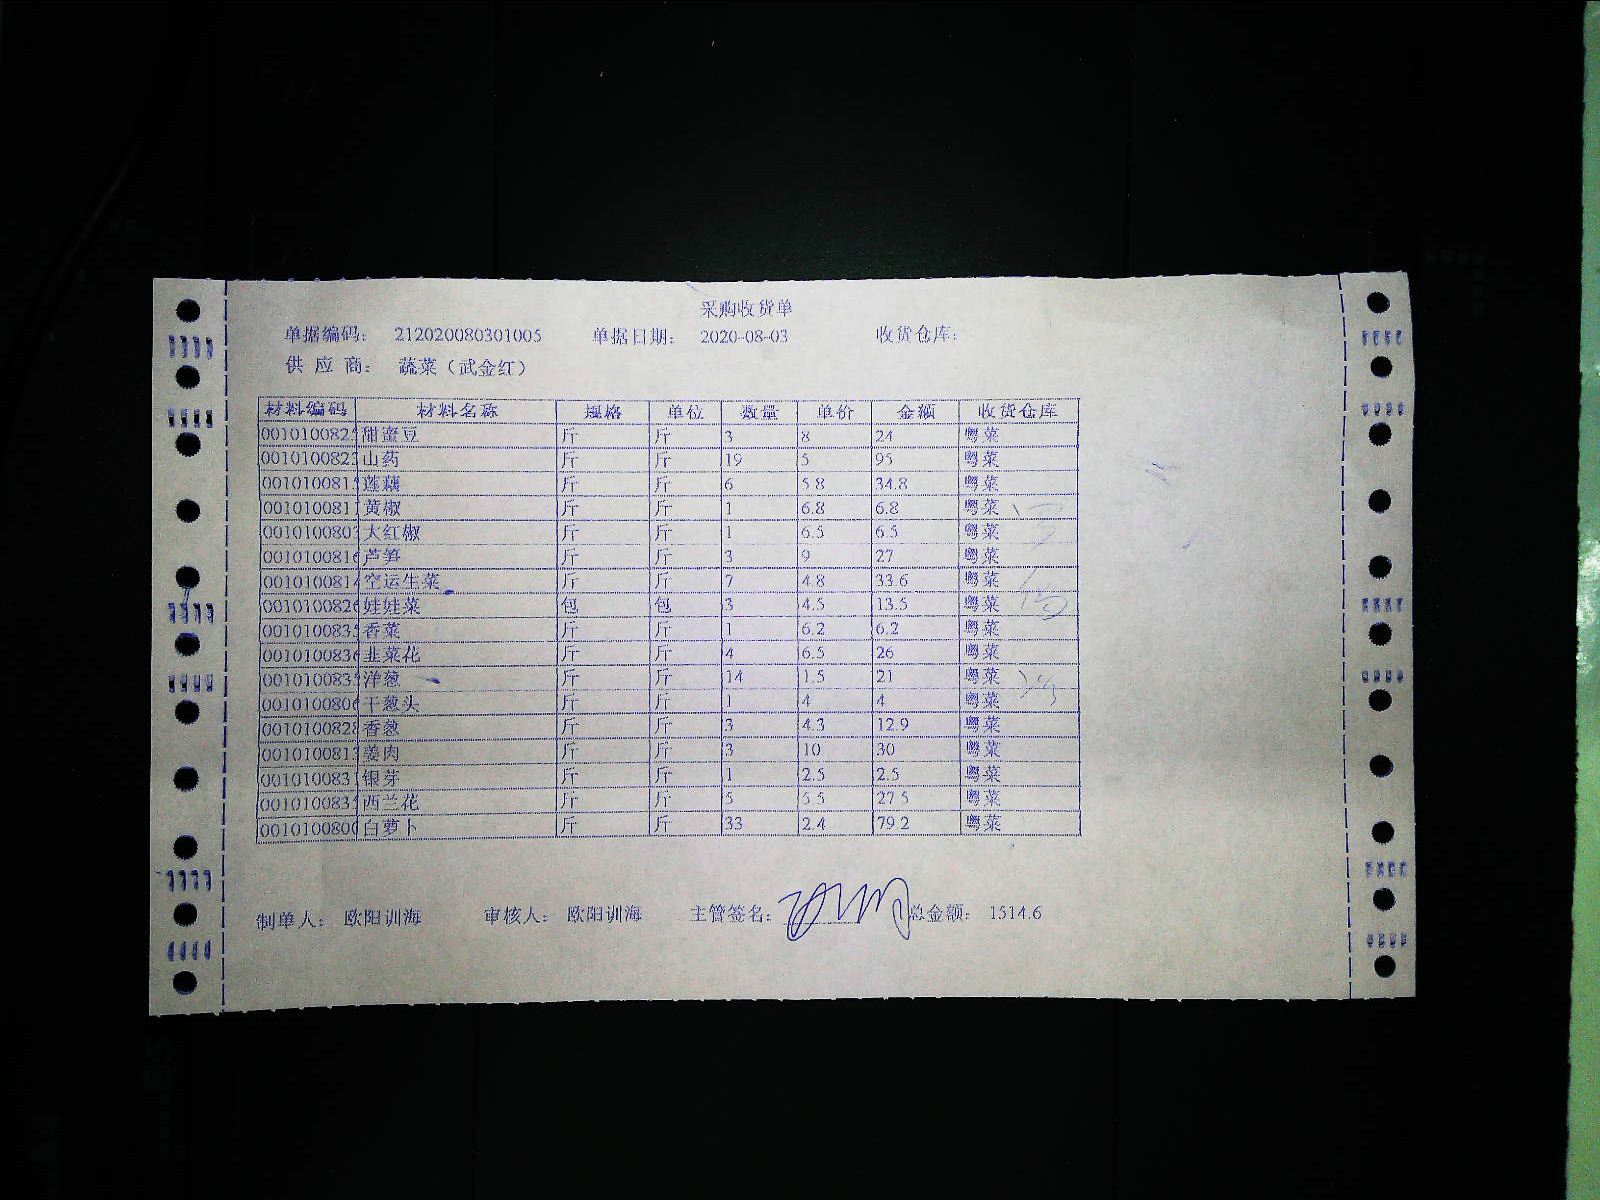 采购收货单
单据编码： 212020080301005 单据日期： 2020-08-03 收货仓库：
供 应 商： 蔬菜（武金红）
材料编码 材料名称 规格 单位 数量 单价 金额 收货仓库
001010082 甜蜜豆 斤 斤 3 8 24 粤菜
001010082 山药 斤 斤 19 5 95 粤菜
001010081 莲藕 斤 斤 6 5.8 34.8 粤菜
001010081 黄椒 斤 斤 1 6.8 6.8 粤菜
001010080 大红椒 斤 斤 1 6.5 6.5 粤菜
001010081 芦笋 斤 斤 3 9 27 粤菜
001010081 空运生菜 斤 斤 7 4.8 33.6 粤菜
001010082 娃娃菜 包 包 3 4.5 13.5 粤菜
001010083 香菜 斤 斤 1 6.2 6.2 粤菜
001010083 韭菜花 斤 斤 4 6.5 26 粤菜
001010083 洋葱 斤 斤 14 1.5 21 粤菜
001010080 干葱头 斤 斤 1 4 4 粤菜
001010082 香葱 斤 斤 3 4.3 12.9 粤菜
001010081 姜肉 斤 斤 3 10 30 粤菜
001010083 银芽 斤 斤 1 2.5 2.5 粤菜
001010083 西兰花 斤 斤 5 5.5 27.5 粤菜
001010080 白萝卜 斤 斤 33 2.4 79.2 粤菜
制单人： 欧阳训海 审核人： 欧阳训海 主管签名： 总金额： 1514.6